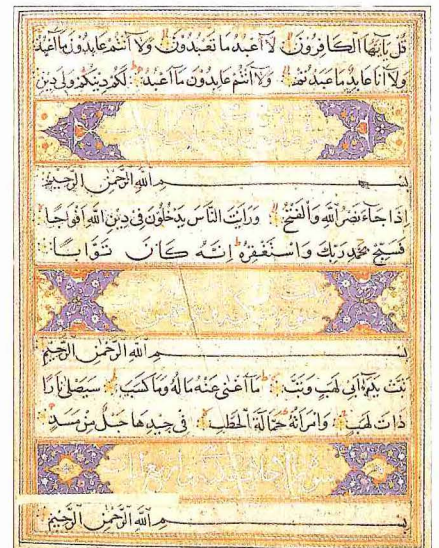 قُلْ يَا أَيُّهَا الْكَافِرُونَ لَا أَعْبُدُ مَا تَعْبُدُونَ وَلَا أَنْتُمْ عَابِدُونَ مَا أَعْبُدُ
وَلَا أَنَا عَابِدٌ مَا عَبَدْتُمْ وَلَا أَنْتُمْ عَابِدُونَ مَا أَعْبُدُ لَكُمْ دِينُكُمْ وَلِيَ دِينِ
بِسْمِ اللَّهِ الرَّحْمَٰنِ الرَّحِيمِ
إِذَا جَاءَ نَصْرُ اللَّهِ وَالْفَتْحُ وَرَأَيْتَ النَّاسَ يَدْخُلُونَ فِي دِينِ اللَّهِ أَفْوَاجًا
فَسَبِّحْ بِحَمْدِ رَبِّكَ وَاسْتَغْفِرْهُ إِنَّهُ كَانَ تَوَّابًا
بِسْمِ اللَّهِ الرَّحْمَٰنِ الرَّحِيمِ
تَبَّتْ يَدَا أَبِي لَهَبٍ وَتَبَّ مَا أَغْنَىٰ عَنْهُ مَالُهُ وَمَا كَسَبَ سَيَصْلَىٰ نَارًا
ذَاتَ لَهَبٍ وَامْرَأَتُهُ حَمَّالَةَ الْحَطَبِ فِي جِيدِهَا حَبْلٌ مِنْ مَسَدٍ
بِسْمِ اللَّهِ الرَّحْمَٰنِ الرَّحِيمِ